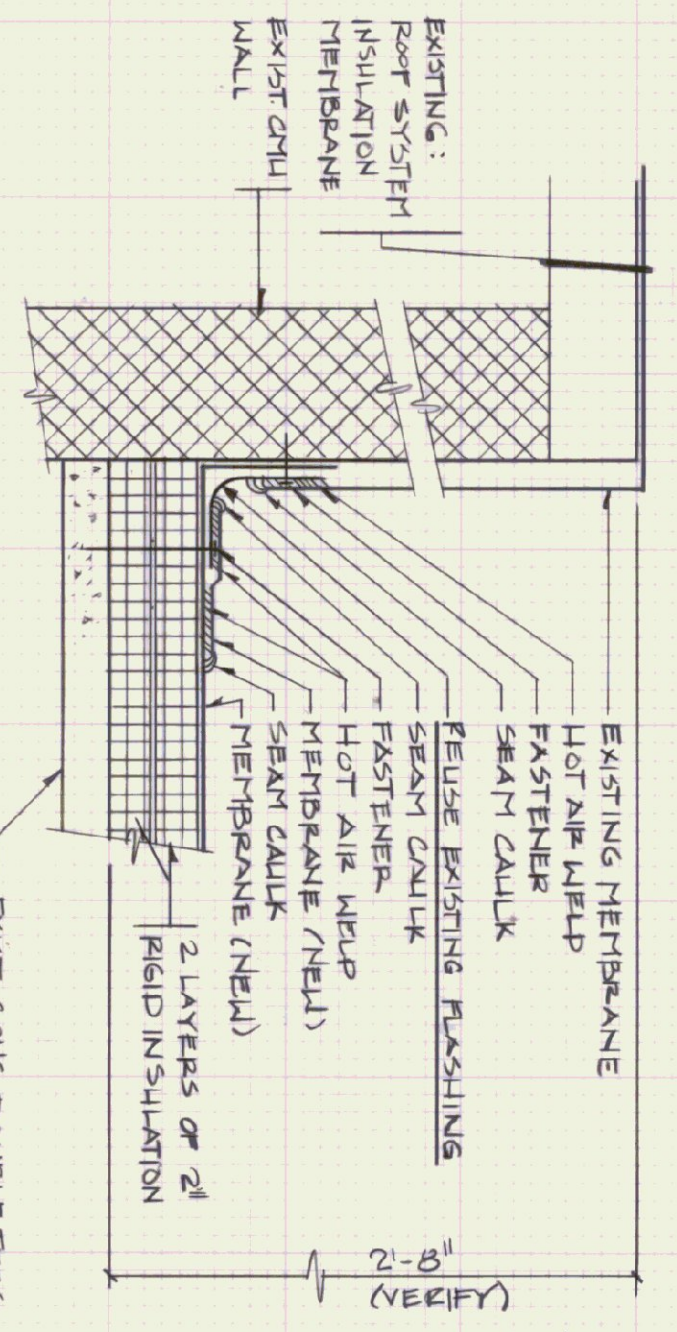 EXISTING:
ROOF SYSTEM
INSULATION
MEMBRANE
EXIST. CMU
WALL
EXISTING MEMBRANE
HOT AIR WELD
FASTENER
SEAM CAULK
REUSE EXISTING FLASHING
SEAM CAULK
FASTENER
HOT AIR WELD
MEMBRANE (NEW)
SEAM CAULK
MEMBRANE (NEW)
2 LAYERS OF 2"
RIGID INSULATION
2'-8"
(VERIFY)